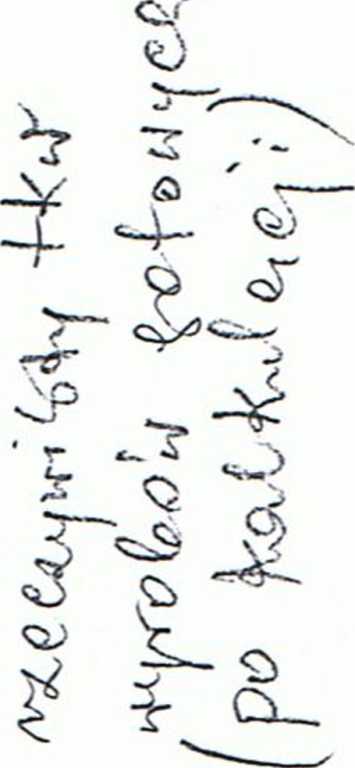 rzeczywisty TKW
wyrobów gotowych
(po kalkulacji)